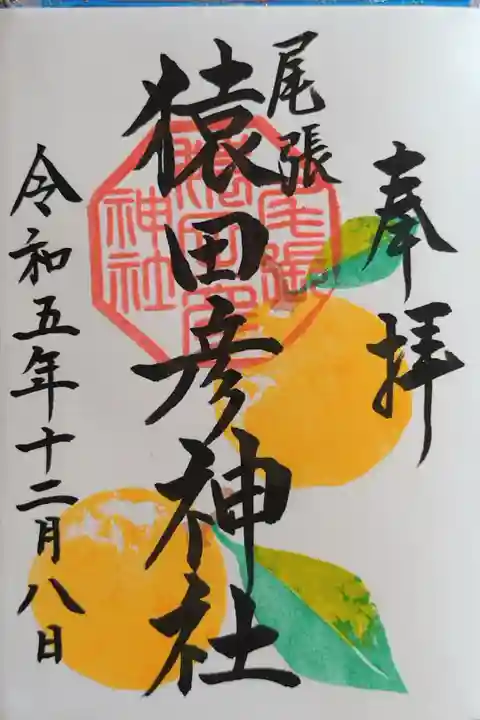 奉拝
尾張
猿田彦神社
令和五年十二月八日
尾張
猿田彦
神社